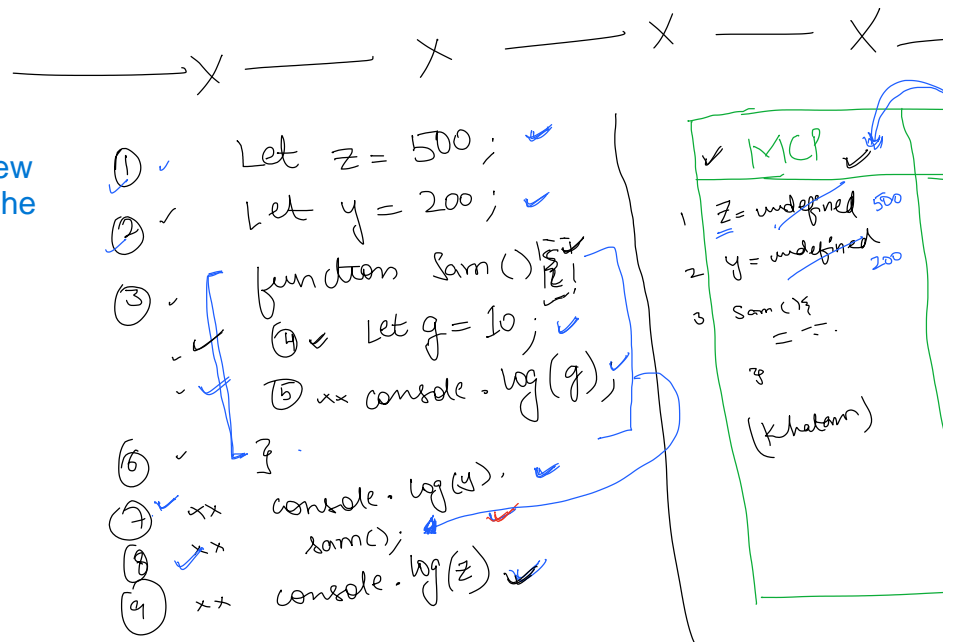 X X X X
ew
he
① Let z = 500 ;
② Let y = 200 ;
③ function Sam() {
④ Let g = 10 ;
⑤ xx console.log(g);
⑥ }
⑦ xx console.log(y).
⑧ xx sam();
⑨ xx console.log(z)
MCP
1 Z = undefined 500
2 y = undefined 200
3 Sam () {
}
(Khatam)